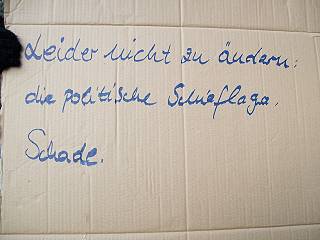 Leider nicht zu ändern:
die politische Schieflage.
Schade.